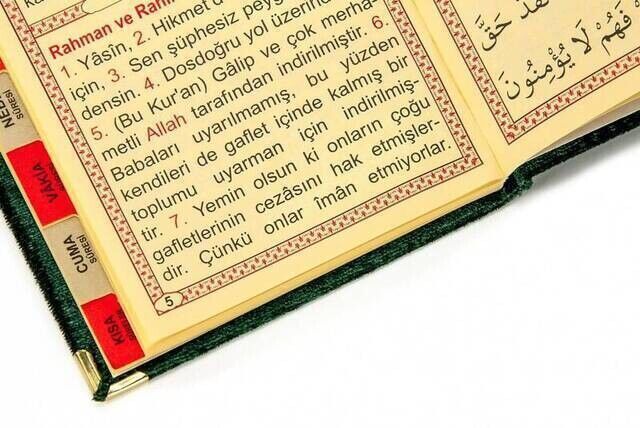 Rahman ve Rah
1. Yâsîn, 2. Hikmet
için, 3. Sen şüphesiz peyg
densin. 4. Dosdoğru yol üzerin
5. (Bu Kur'an) Gâlip ve çok merha-
metli Allah tarafından indirilmiştir. 6.
Babaları uyarılmamış, bu yüzden
kendileri de gaflet içinde kalmış bir
toplumu uyarman için indirilmiş-
tir. 7. Yemin olsun ki onların çoğu
gafletlerinin cezâsını hak etmişler-
dir. Çünkü onlar îmân etmiyorlar.
5
حَقَّ
فَهُمْ لَا يُؤْمِنُونَ
SÛRESİ
VÂKIA
CUMA
SÛRESİ
KISA